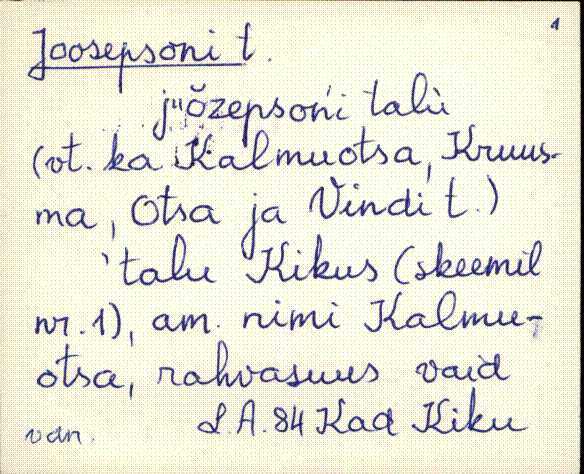 1
Joosepsoni t.
j"ŏzepsońi talu
(vt. ka Kalmuotsa, Kruus-
ma, Otsa ja Vindi t.)
'talu Kikus (skeemil
nr. 1), am. nimi Kalmu-
otsa, rahvasuus vaid
van. L.A. 84 Kad Kiku